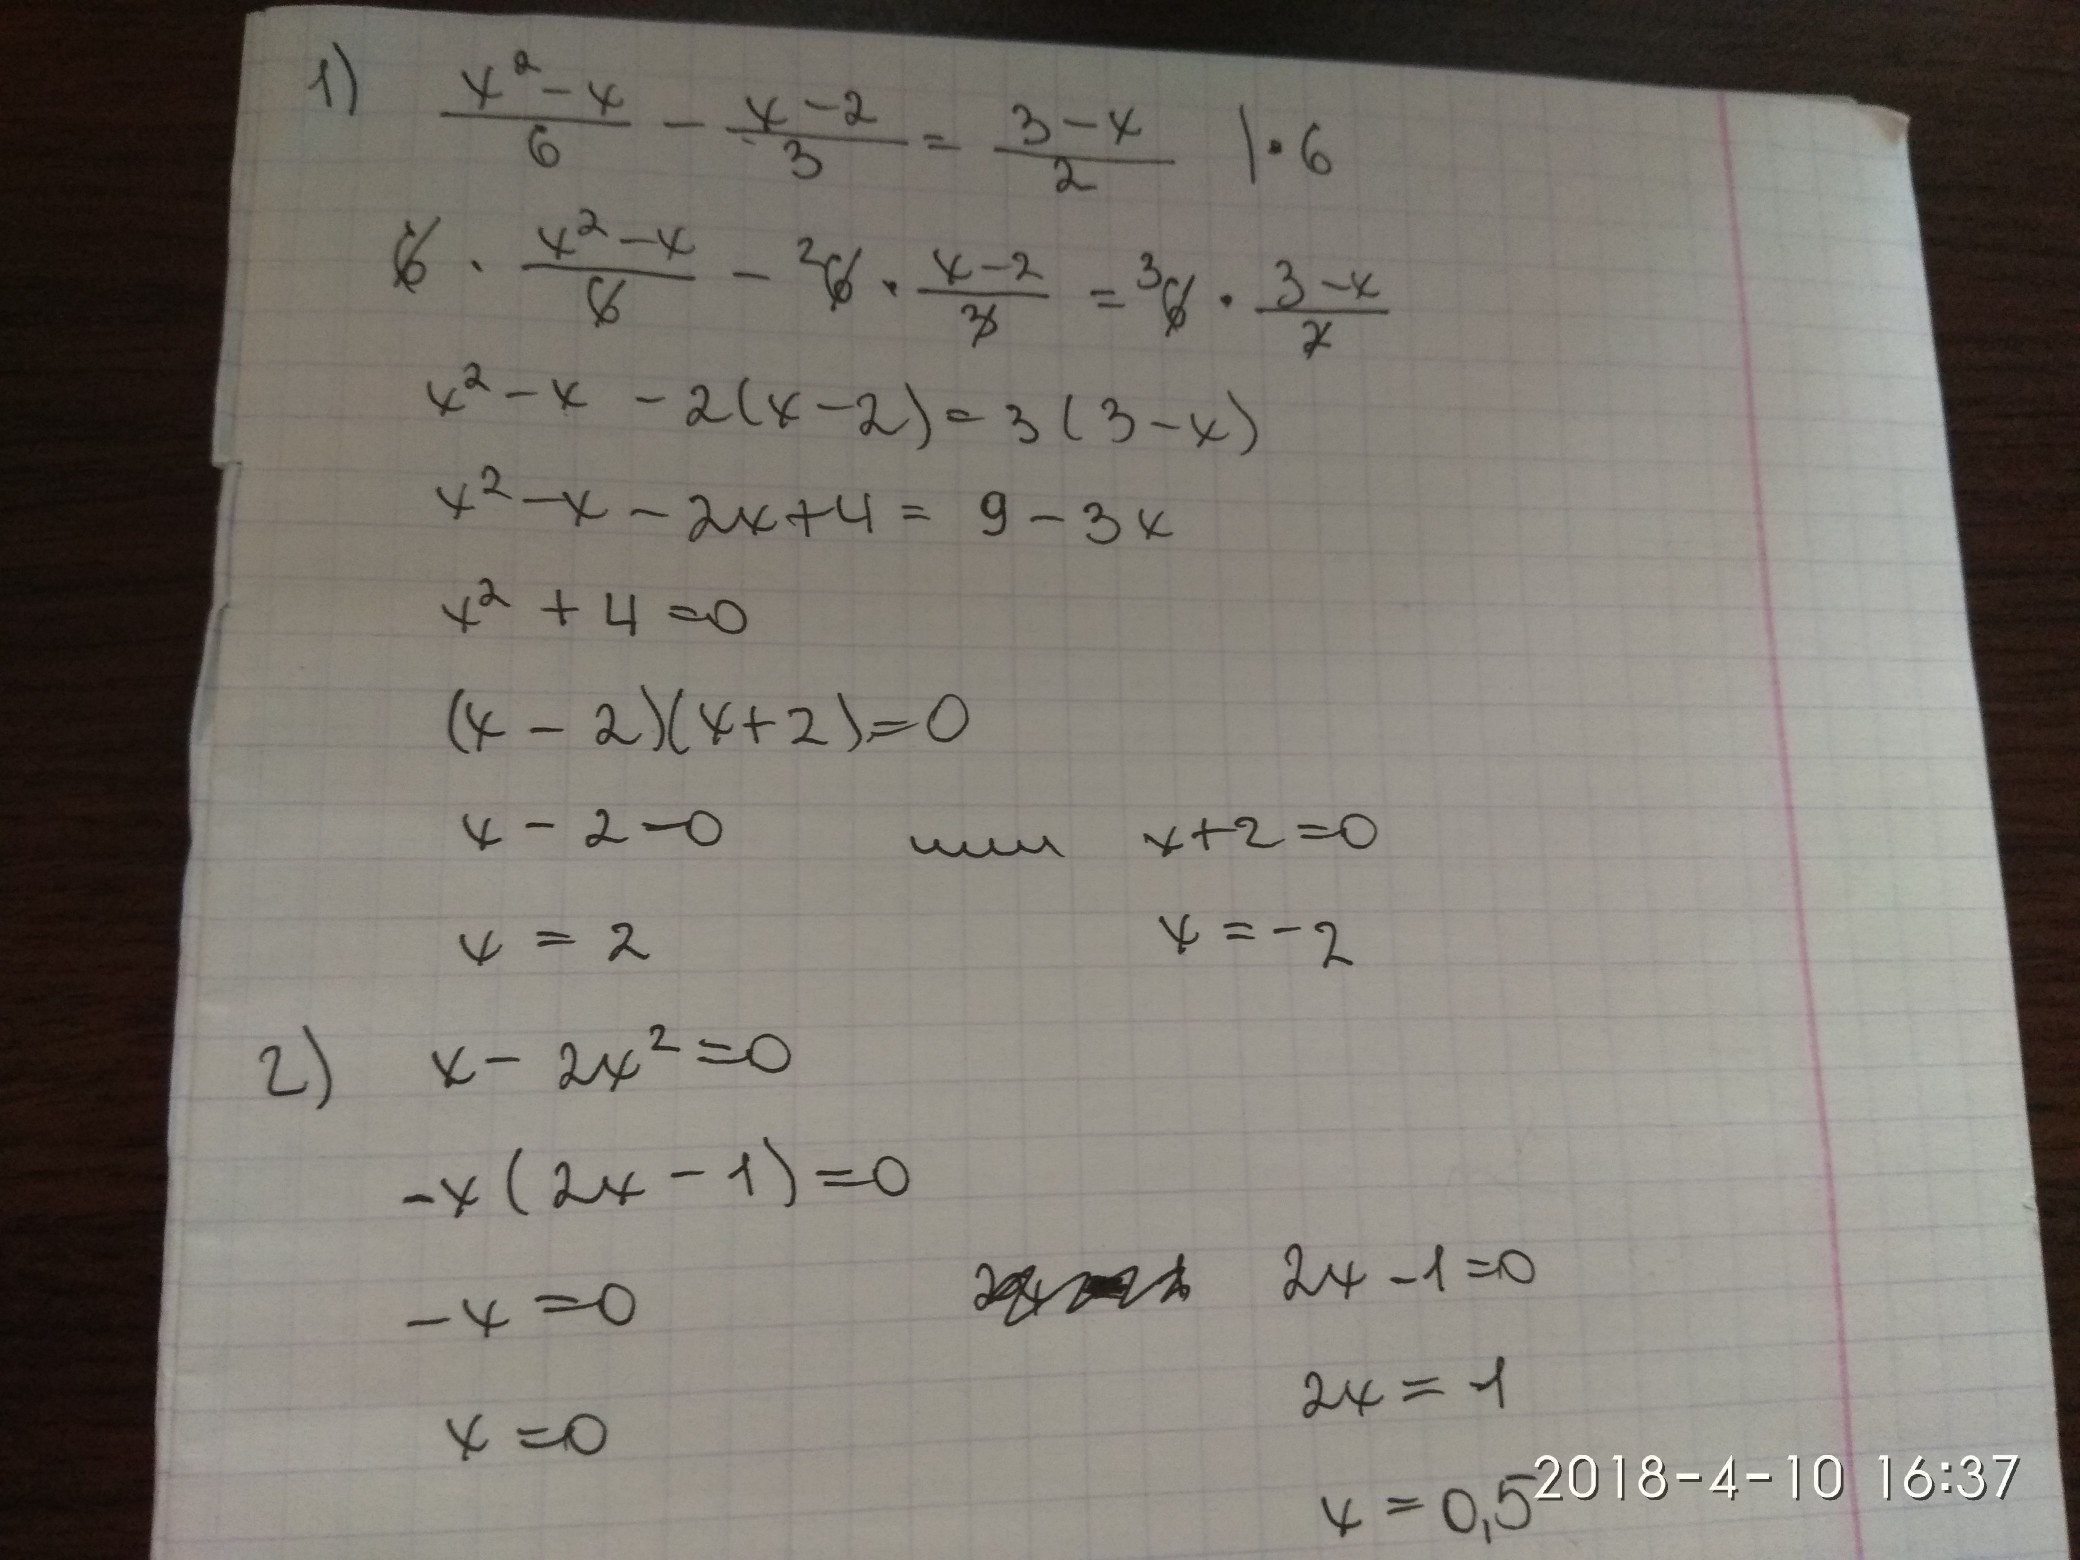 1) (x² - x)/6 - (x - 2)/3 = (3 - x)/2 | · 6
6 · (x² - x)/6 - ²6 · (x - 2)/3 = ³6 · (3 - x)/2
x² - x - 2(x - 2) = 3(3 - x)
x² - x - 2x + 4 = 9 - 3x
x² + 4 = 0
(x - 2)(x + 2) = 0
x - 2 = 0 или x + 2 = 0
x = 2 x = -2
2) x - 2x² = 0
-x(2x - 1) = 0
-x = 0 2x - 1 = 0
x = 0 2x = 1
x = 0,5
2018-4-10 16:37